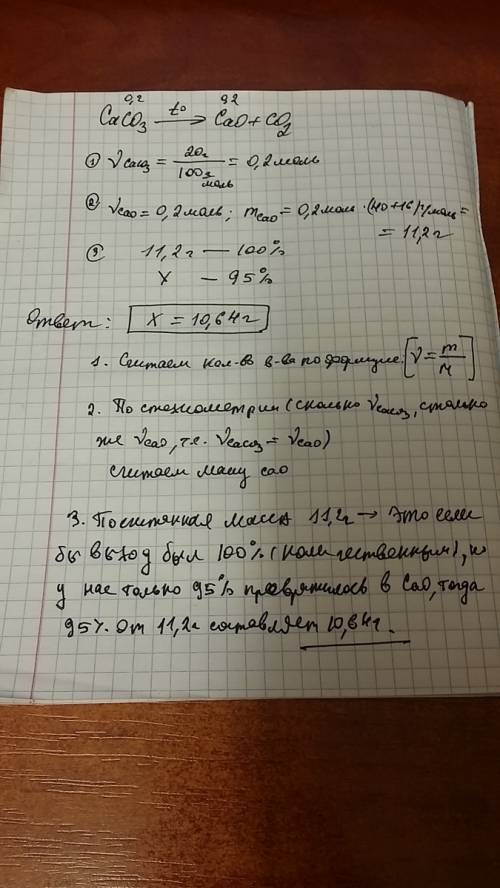 0,2 0,2
CaCO3 t° → CaO + CO2
① νCaCO3 = 20г / 100г/моль = 0,2 моль
② νCaO = 0,2 моль; mCaO = 0,2 моль · (40+16) г/моль =
= 11,2 г
③ 11,2 г — 100%
X — 95%
Ответ: X = 10,64 г
1. Считаем кол-во в-ва по формуле: [ν = m/M]
2. По стехиометрии (сколько νCaCO3, столько
же νCaO, т.е. νCaCO3 = νCaO)
считаем массу CaO
3. Посчитанная масса 11,2г → это если
бы выход был 100% (количественным), но
у нас только 95% превратилось в CaO, тогда
95% от 11,2г составляет 10,64г.